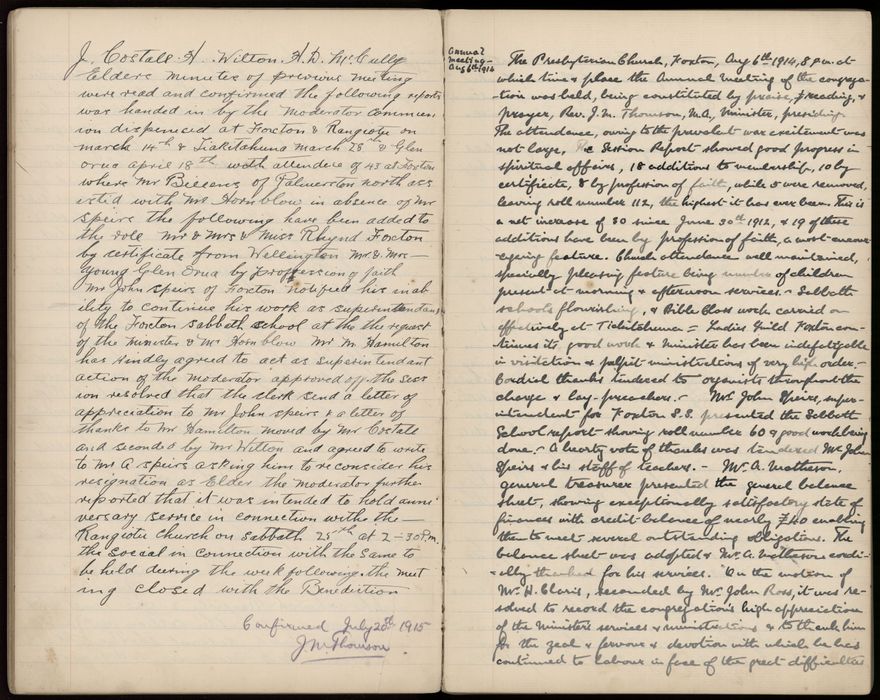 J. Costall. H. Wilton. H. D. McCully
Elders minutes of previous meeting
were read and confirmed the following reports
was handed in by the moderator commun
ion dispenced at Foxton & Rangiotu on
march 14th & Tiakitahuna march 28th & Glen
orua april 18th with attendence of 43 at Foxton
where Mr Billens of Palmerston north ass
isted with Mr Hornblow in absence of Mr
Speirs the following have been added to
the role Mr & Mrs & Miss Rhynd Foxton
by certificate from Wellington Mr & Mrs
young Glen Orua by proffession of faith
Mr John Speirs of Foxton notified his inab
ility to continue his work as superintendant
of the Foxton sabbeth school at the the request
of the minister & Mr Hornblow Mr M. Hamilton
has kindly agreed to act as superintendant
action of the moderator approved off the sess
ion resolved that the clerk send a letter of
appreciation to Mr John speirs & a letter of
thanks to Mr Hamilton moved by Mr Costall
and seconded by Mr Wilton and agreed to write
to Mr A speirs asking him to reconsider his
resignation as Elder the moderator further
reported that it was intended to hold anni
versary service in connection withe the
Rangiotu church on sabbath 25th at 2-30 P.m.
the social in connection with the same to
be held during the week following. the meet
ing closed with the Benediction
Confirmed July 20th 1915
J M Thomson
Annual
meeting -
Aug 6th 1914
The Presbyterian Church, Foxton, Aug 6th 1914, 8 p.m. at
which time & place the Annual meeting of the congrega-
-tion was held, being constituted by praise, reading, &
prayer, Rev. J. M. Thomson, M.A., Minister, presiding.
The attendance, owing to the prevalent war excitement was
not large. The Session Report showed good progress in
spiritual affairs, 18 additions to membership, 10 by
certificate, 8 by profession of faith, while 5 were removed,
leaving roll number 112, the highest it has ever been. This is
a net increase of 30 since June 30th 1912, & 19 of these
additions have been by profession of faith, a most encour-
-ageing feature. Church attendance well maintained,
specially pleasing feature being number of children
present at morning & afternoon services. - Sabbath
schools flourishing, & Bible Class work carried on
effectively at Tiakitahuna = Ladies Guild Foxton con-
tinues its good work & Minister has been indefatigable
in visitation & pulpit ministrations of very high order. -
Cordial thanks tendered to organists throughout the
charge & lay-preachers. - Mr. John Speirs, super-
intendent for Foxton S.S. presented the Sabbath
School report showing roll number 60 & good work being
done. - A hearty vote of thanks was tendered Mr John
Speirs & his staff of teachers. - Mr. A. Matheson,
general treasurer presented the general balance
sheet, showing exceptionally satisfactory state of
finances with credit balance of nearly £40 enabling
them to meet several outstanding obligations. The
balance sheet was adopted & Mr. A. Matheson cordi-
-ally thanked for his services. On the motion of
Mr. H. Claris, seconded by Mr. John Ross, it was re-
solved to record the congregation's high appreciation
of the Minister's services & ministrations & to thank him
for the zeal & fervour & devotion with which he has
continued to labour in face of the great difficulties